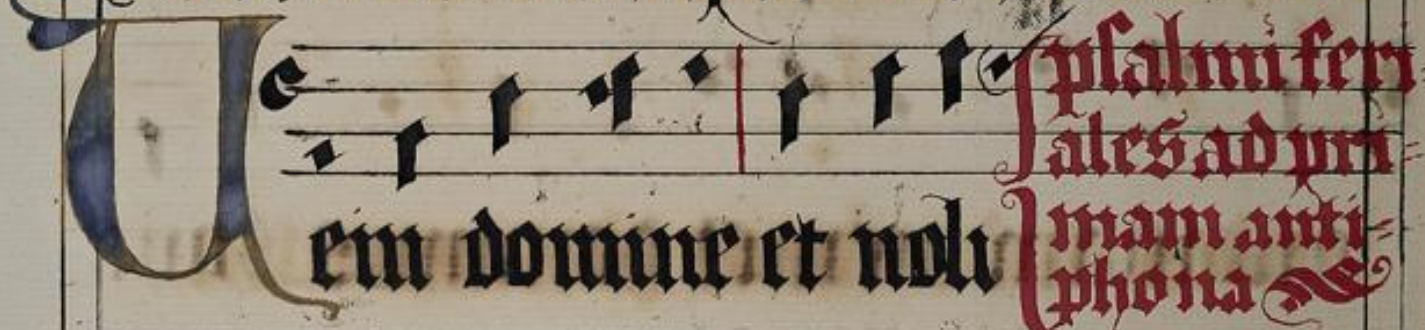 Ueni domine et noli
psalmi feri
ales ad pri-
mam anti-
phona